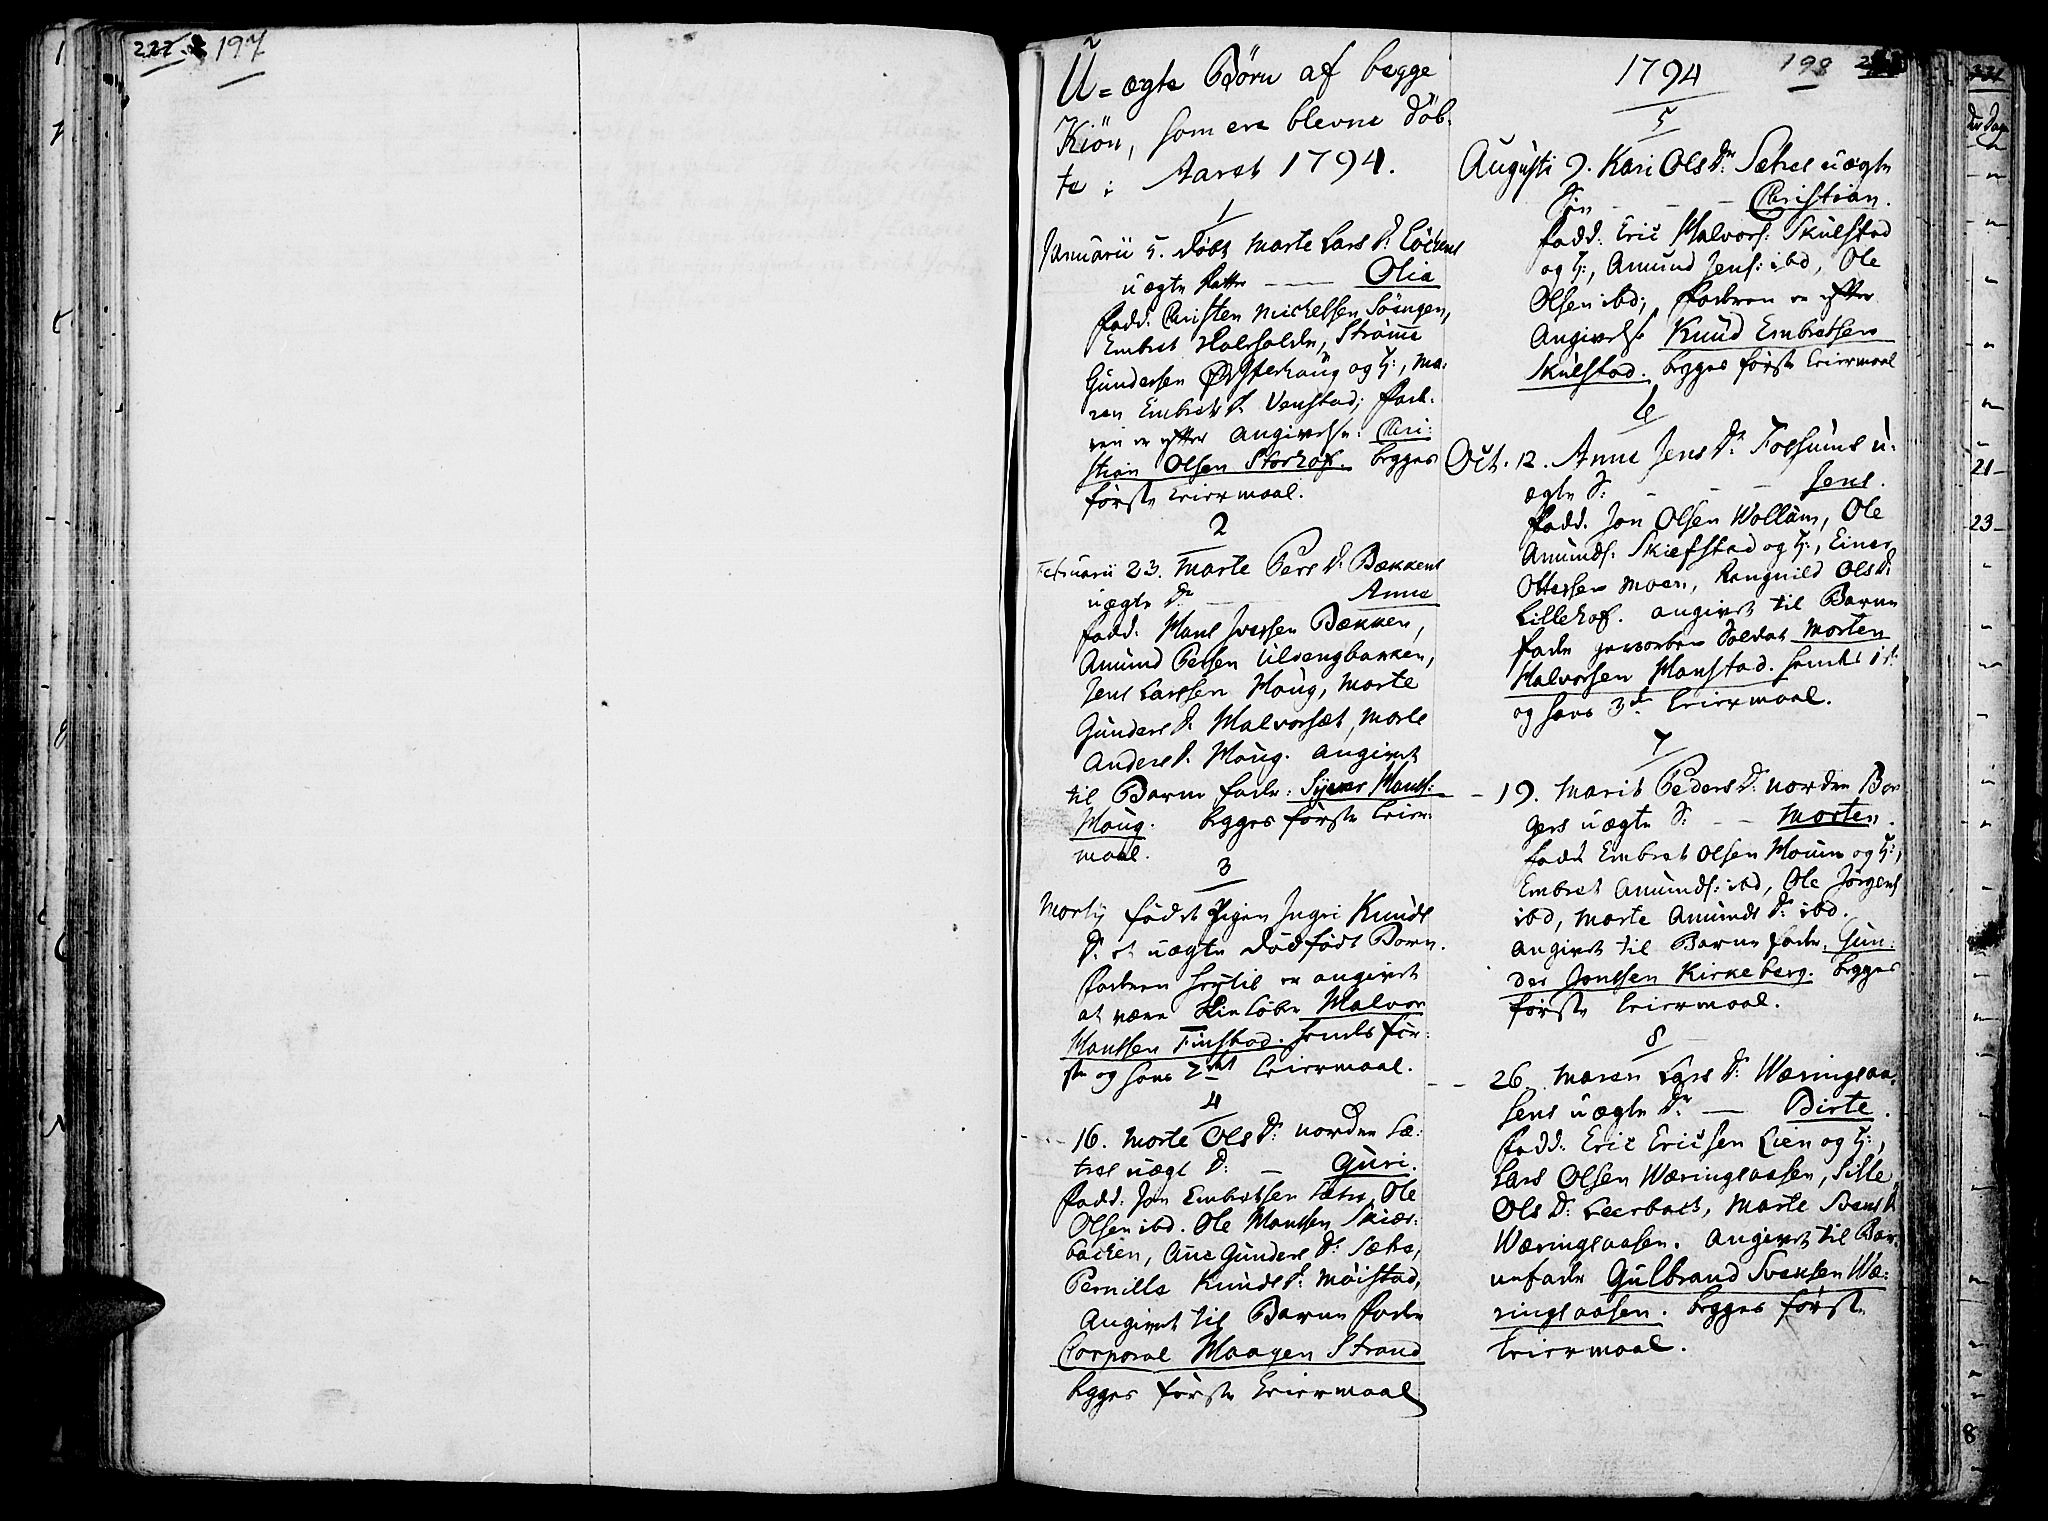 222 197
U=ægte Börn af begge
Kiön, som ere blevne döb-
te i Aaret 1794.
1
Januarii 5. döbt Marte Lars D. Löckens
uægte Datter — Olia
fadd. Christen Michelsen Söengen,
Embret Halvsolde, Strömne
Gundersen Österhaug og H:, Ma-
ren Embrets D. Venstad; Fade-
ren er efter Angivelse: Chri-
stian Olsen Storhof. begges
förste Leiermaal.
2
Februarii 23. Marte Pers D. Bækkens
uægte D. — Anne
fadd. Hans Iversen Bækken,
Amund Persen Ulvengbakken,
Jens Larssen Houg, Marte
Gunders D. Halvorsæt, Marte
Anders D. Houg. angivet
til Barne fader: Syver Hans:
Houg. begges förste Leier-
maal.
3
Martij födet Pigen Ingri Knuds
D. et uægte Dödfödt Barn.
Faderen hertil er angivet
at være Halvor
Hanssen Finstad. hendes för-
ste og hans 2det Leiermaal.
4
16. Marte Ols D: norden Sæ-
tres uægt D: — Guri.
fadd. Jon Embretsen Sætre, Ole
Olsen ibd. Ole Hanssen Skiær-
backen, Ane Gunders D: Sætre,
Pernille Knuds D: Möistad,
Angivet til Barne Fader
Corporal Maagen Strand
begges förste Leiermaal
1794 198
5
Augusti 9. Kari Ols Dr Sætres uægte
Sön — — — Christian.
fadd: Eric Halvors: Skulstad
og H:, Amund Jens: ibd, Ole
Olsen ibd; Faderen er efter
Angivelse Knud Embretsen
Skulstad. begges förste Leiermaal
6
Oct. 12. Anne Jens Dr Folsums u-
ægte S: — — — Jens.
fadd. Jon Olsen Wollum, Ole
Amunds: Skiefstad og H:, Einer
Ottersen Moen, Rangnild Ols D:
Lillehof. angivet til Barne
fader geworben Soldat Morten
Halvorsen Hanstad. hendes 1st
og hans 3die Leiermaal.
7
- 19. Marit Peders D: norden Bor
gers uægte S: — — Morten.
fadd Embret Olsen Moum og H:,
Embret Amunds: ibd, Ole Jörgens
ibd, Marte Amunds D: ibd.
angivet til Barne fader. Gun-
der Jonssen Kirkeberg. begges
förste Leiermaal.
8
- - 26. Maren Lars D: Wæringsaa-
sens uægte Dr — Birte.
fadd: Eric Ericsen Lien og H:,
Lars Olsen Wæringsaasen, Sille
Ols D: Leerbæk, Marte Svens D
Wæringsaasen. Angivet til Bar-
nefader Gulbrand Svensen Wæ-
ringsaasen. begges förste
Leiermaal.
21
23
8